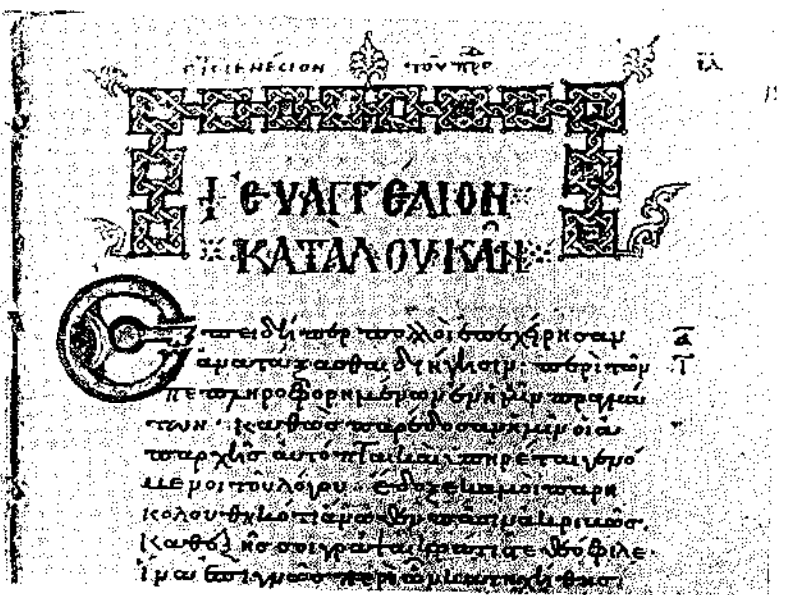 ΕΥΑΓΓΕΛΙΟΝ
ΚΑΤΑ ΛΟΥΚΑΝ
Ἐπειδήπερ πολλοὶ ἐπεχείρησαν
ἀνατάξασθαι διήγησιν περὶ τῶν
πεπληροφορημένων ἐν ἡμῖν πραγμά
των. καθὼς παρέδοσαν ἡμῖν οἱ ἀ
παρχῆς αὐτόπται καὶ ὑπηρέται γενό
μενοι τοῦ λόγου ἔδοξε κἀμοὶ παρη
κολουθηκότι ἄνωθεν πᾶσιν ἀκριβῶς,
καθεξῆς σοι γράψαι κράτιστε Θεόφιλε.
ἵνα ἐπιγνῷς περὶ ὧν κατηχήθης